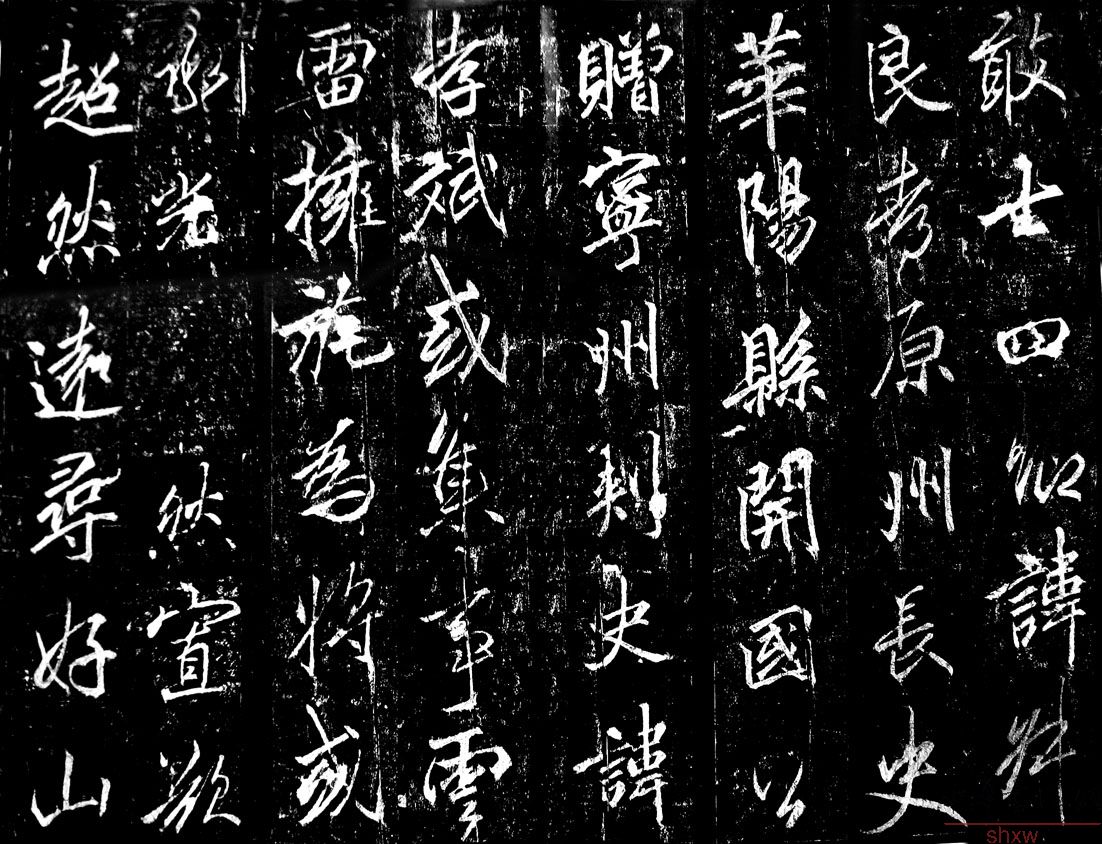 敢士四諱
考原州長史
華陽縣開國公
贈寧州刺史諱
孝斌或集事雲
雷擁旄為將或
光然宣歟
超然遠尋好山
shxw